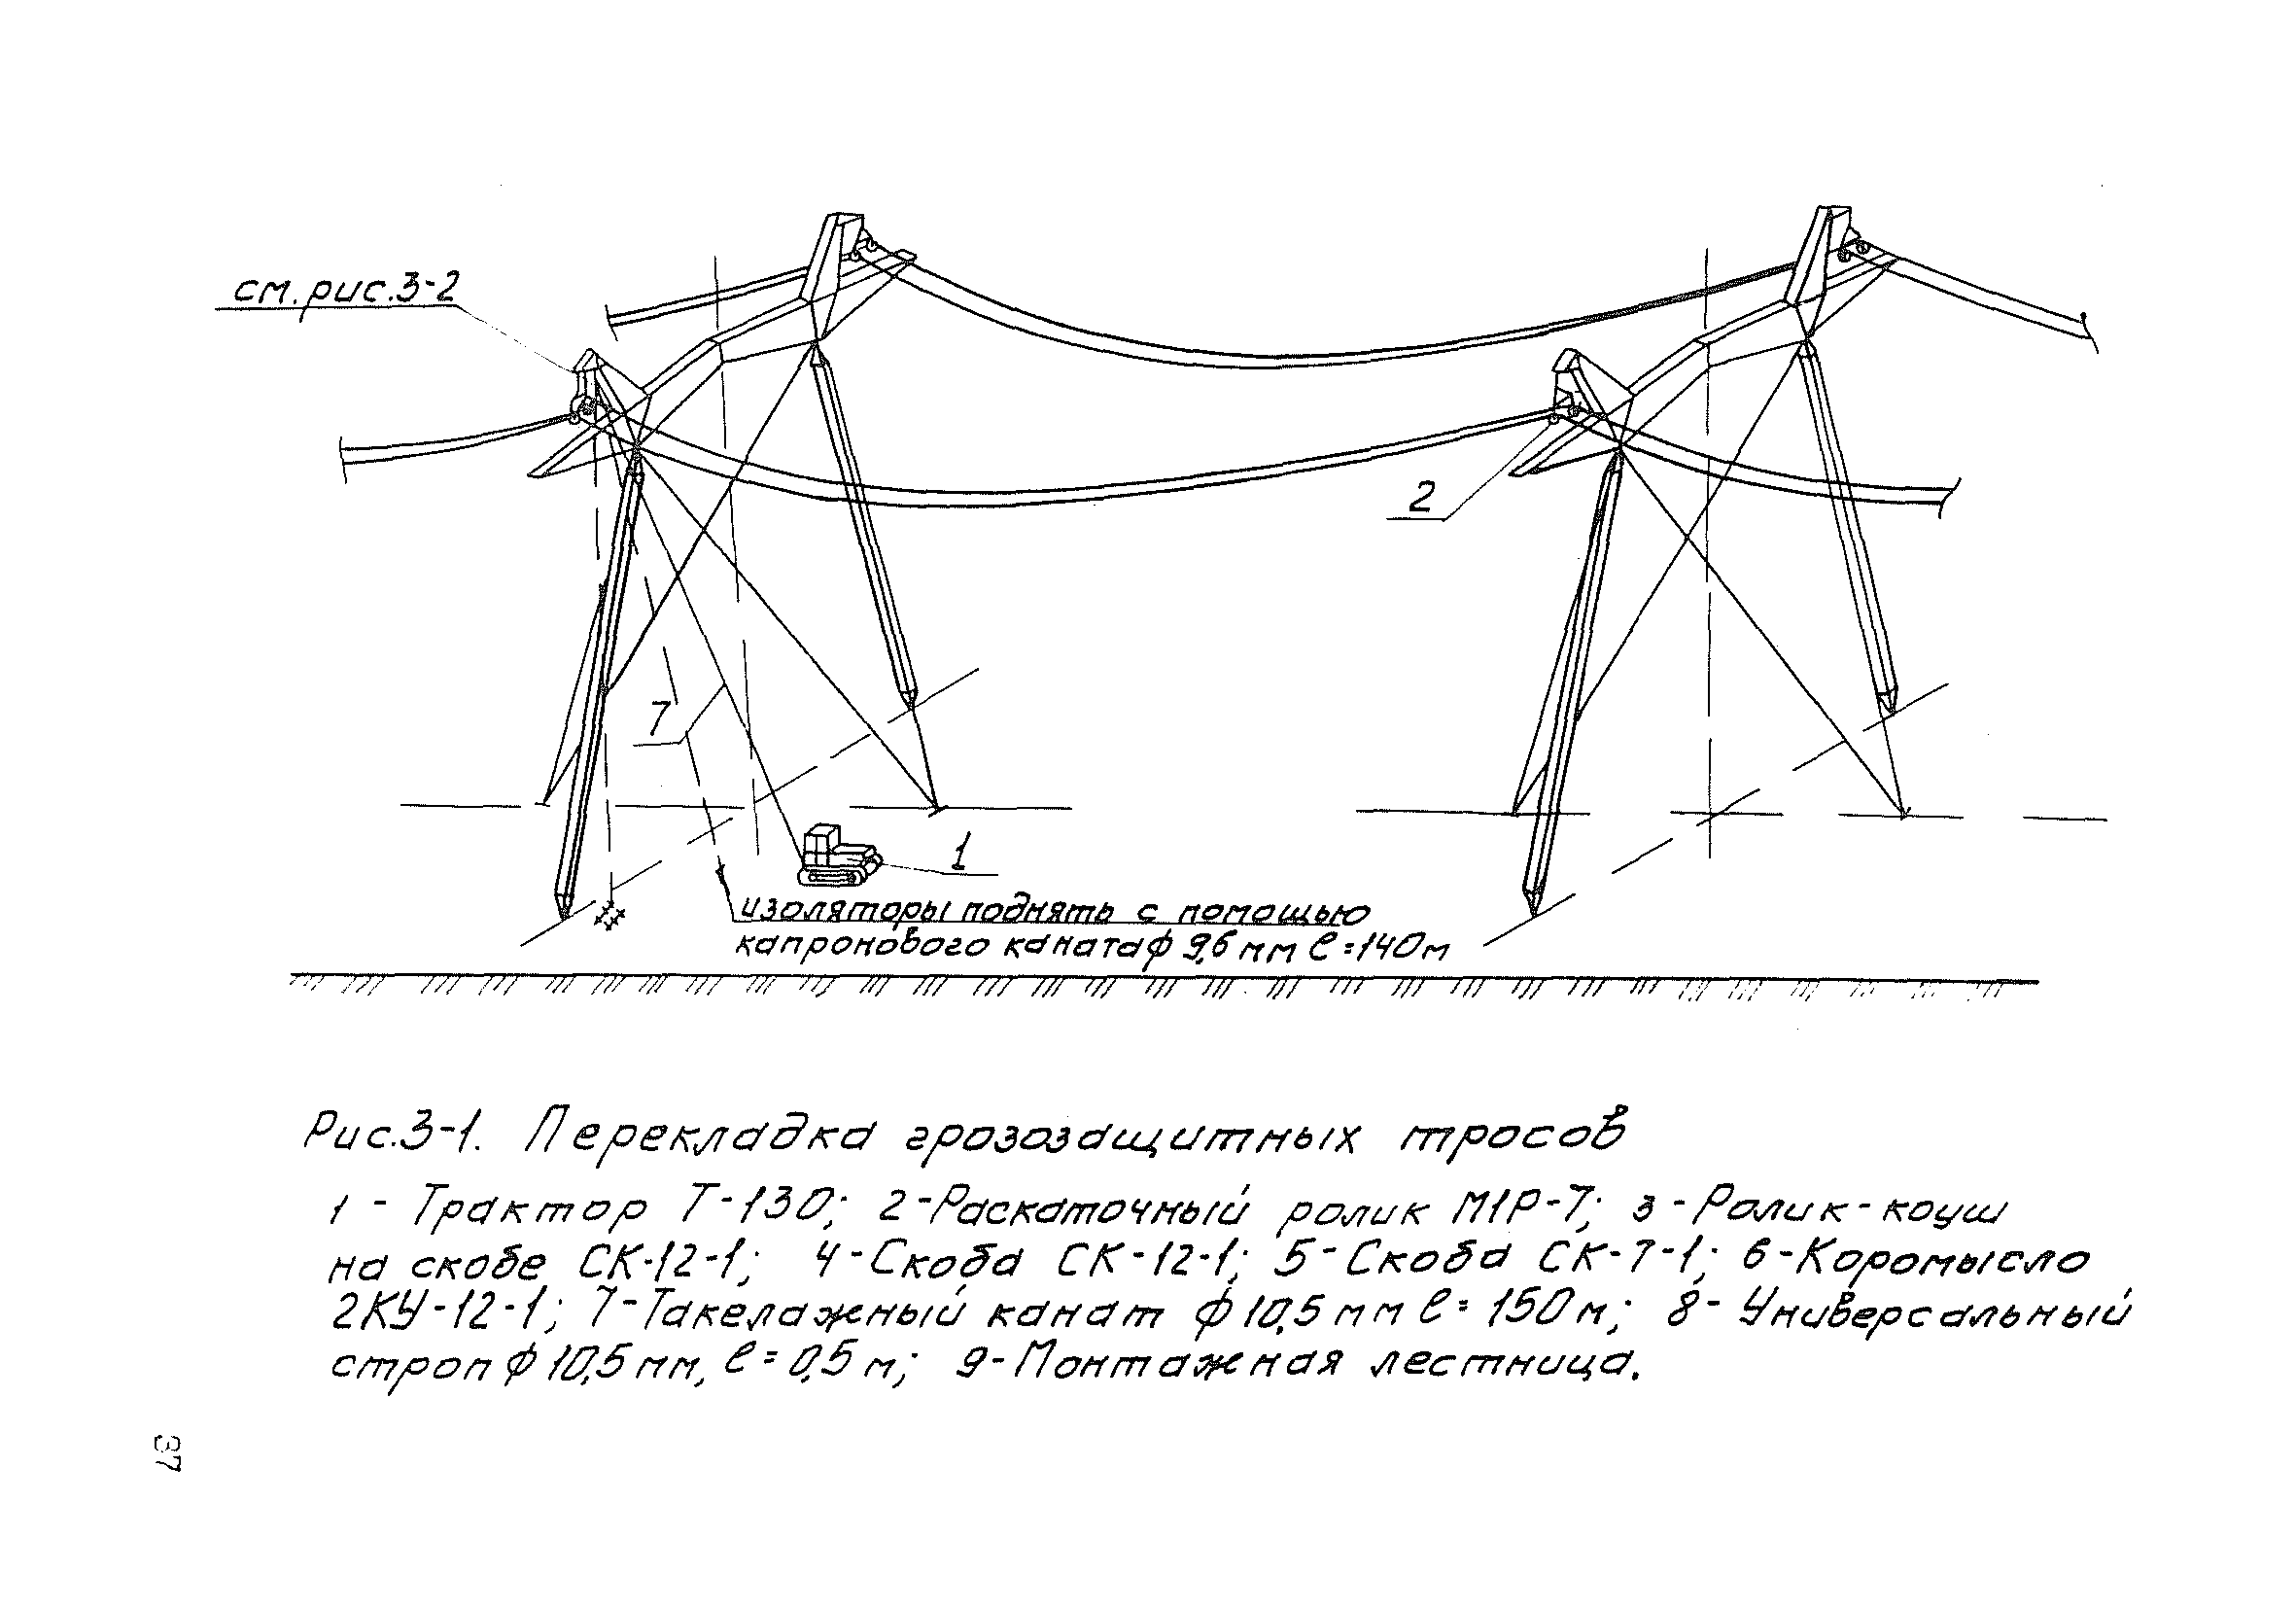 см. рис. 3-2
2
7
1
изоляторы поднять с помощью
капронового каната ф 9,6 мм ℓ=140м
Рис.3-1. Перекладка грозозащитных тросов
1 - Трактор Т-130; 2-Раскаточный ролик М1Р-7; 3-Ролик-коуш
на скобе СК-12-1; 4-Скоба СК-12-1; 5-Скоба СК-7-1; 6-Коромысло
2КУ-12-1; 7-Такелажный канат ф 10,5 мм ℓ= 150м; 8- Универсальный
строп ф 10,5 мм, ℓ= 0,5 м; 9-Монтажная лестница.
37